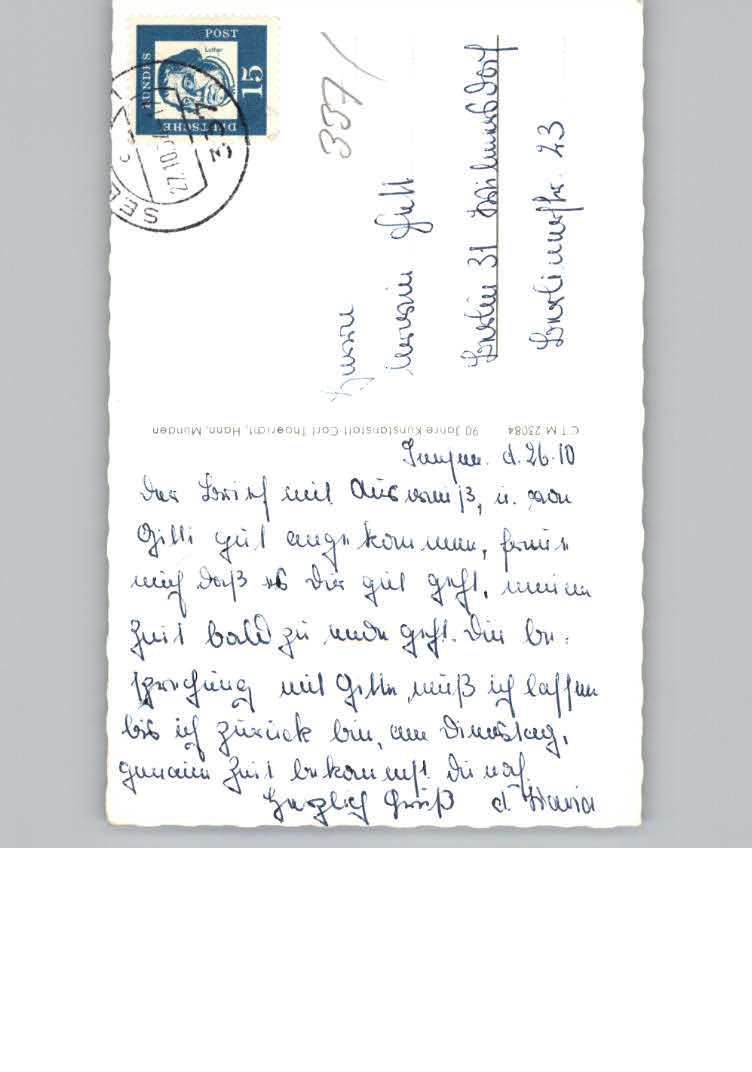 DEUTSCHE
BUNDES
POST
Luther
15
27.10.
337
337/
Herrn
Berlin 31 Wilmersdorf
Berlinerstr. 23
C T M 23084 90 Jahre Kunstanstalt Carl Thoericht, Hann. Münden
d. 26.10
Der Brief mit Ausweiß, u. von
Gitti gut angekommen, freue
mich daß es Dir gut geht, meine
Zeit bald zu ende geht. Die be-
sprechung mit Gitti muß ich lassen
bis ich zurück bin, am Dienstag,
genaue Zeit bekommst Du noch.
Herzlich Gruß d. Maria